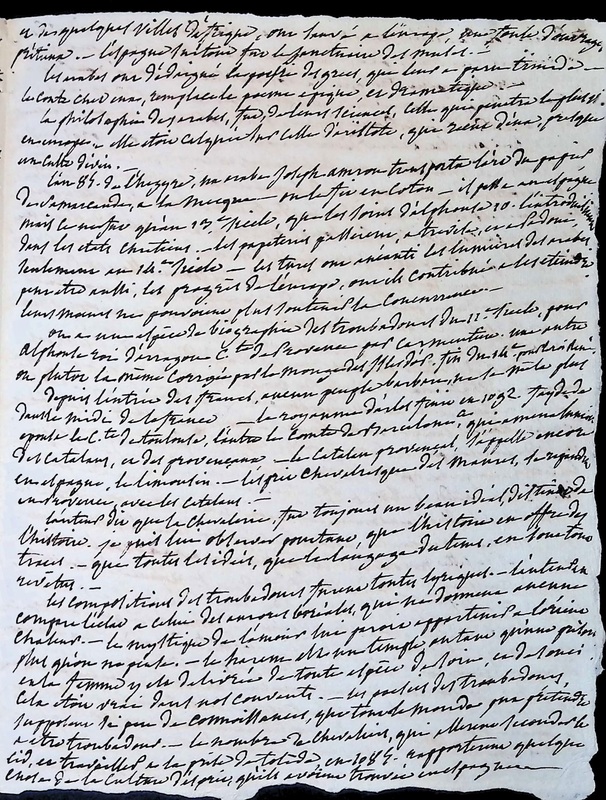 et de quelques villes d'afrique, ont sauvé à l'europe, une foule d'ouvrages
prétieux. — l'espagne surtout fut le sanctuaire des muses. —
les arabes ont dédaigné la poësie des grecs, que leur a paru timide —
le conte chez eux, remplace le poeme epique, et dramatique. —
la philosophie des arabes, fut, de leurs sciences, celle qui pénetra le plus
en europe. — elle étoit calquée sur celle d'aristote, que reçut d'eux, presque
un culte divin. —
l'an 85. de l'hegyre, un arabe Joseph amrou transporta l'art du papier
de samarcande, à la mecque — on le fit en coton — il passa en espagne
mais ce ne fut qu'au 13.me siecle, que les soins d'alphonse 10. l'introduisirent
dans les etats chretiens. — les papeteries passerent, à trevise, et a Padoue
seulement au 14.me siecle — les turcs ont anéanti les lumieres des arabes
peut etre aussi, les progrès de l'europe, ont ils contribué à les éteindre
leurs mœurs ne pouvoient plus soutenir la concurrence. —
on a une espèce de biographie des troubadours du 12.e siecle, pour
alphonse roi d'arragon C.te de Provence par carmentiere. une autre
ou plutot la même corrigée par le monge des isles d'or. fin du 14.e
depuis l'entrée des francs, aucun peuple barbare, ne se mêla plus
dans le midi de la france — le royaume d'arles finit en 1092.
epousa le C.te de toulouse, l'autre le comte de Barcelonne, que amena
des catalans, et des provencaux — le catalan provençal, s'appelle encore
en espagne, le limousin. — l'esprit chevaleresque des maures, se répandit
en provence, avec les catalans. —
l'auteur dit que la chevalerie, fut toujours un beau idéal, distinct de
l'histoire. je puis leur observer pourtant, que l'histoire en offre des
traces. — que toutes les idées, que le langage du tems, en sont tous
revetus. —
les compositions des troubadours furent toutes lyriques. —
compare l'éclat a celui des aurores boréales, qui ne donnent aucune
chaleur. — le mystique de l'amour lui paroit appartenir à l'orient
plus qu'on ne pense. — le harem est un temple autant qu'une prison
et la femme y est délivrée de toute espèce de soin, et de souci
cela étoit vrai dans nos couvents. — les poesies des troubadours,
supposent si peu de connoissances, que tout le monde put prétendre
à etre troubadour. — le nombre de chevaliers, que allerent seconder le
cid, et travailler a la prise de tolede, en 1085. rapporterent quelque
chose de la culture d'esprit, qu'ils avoient trouvée en espagne —